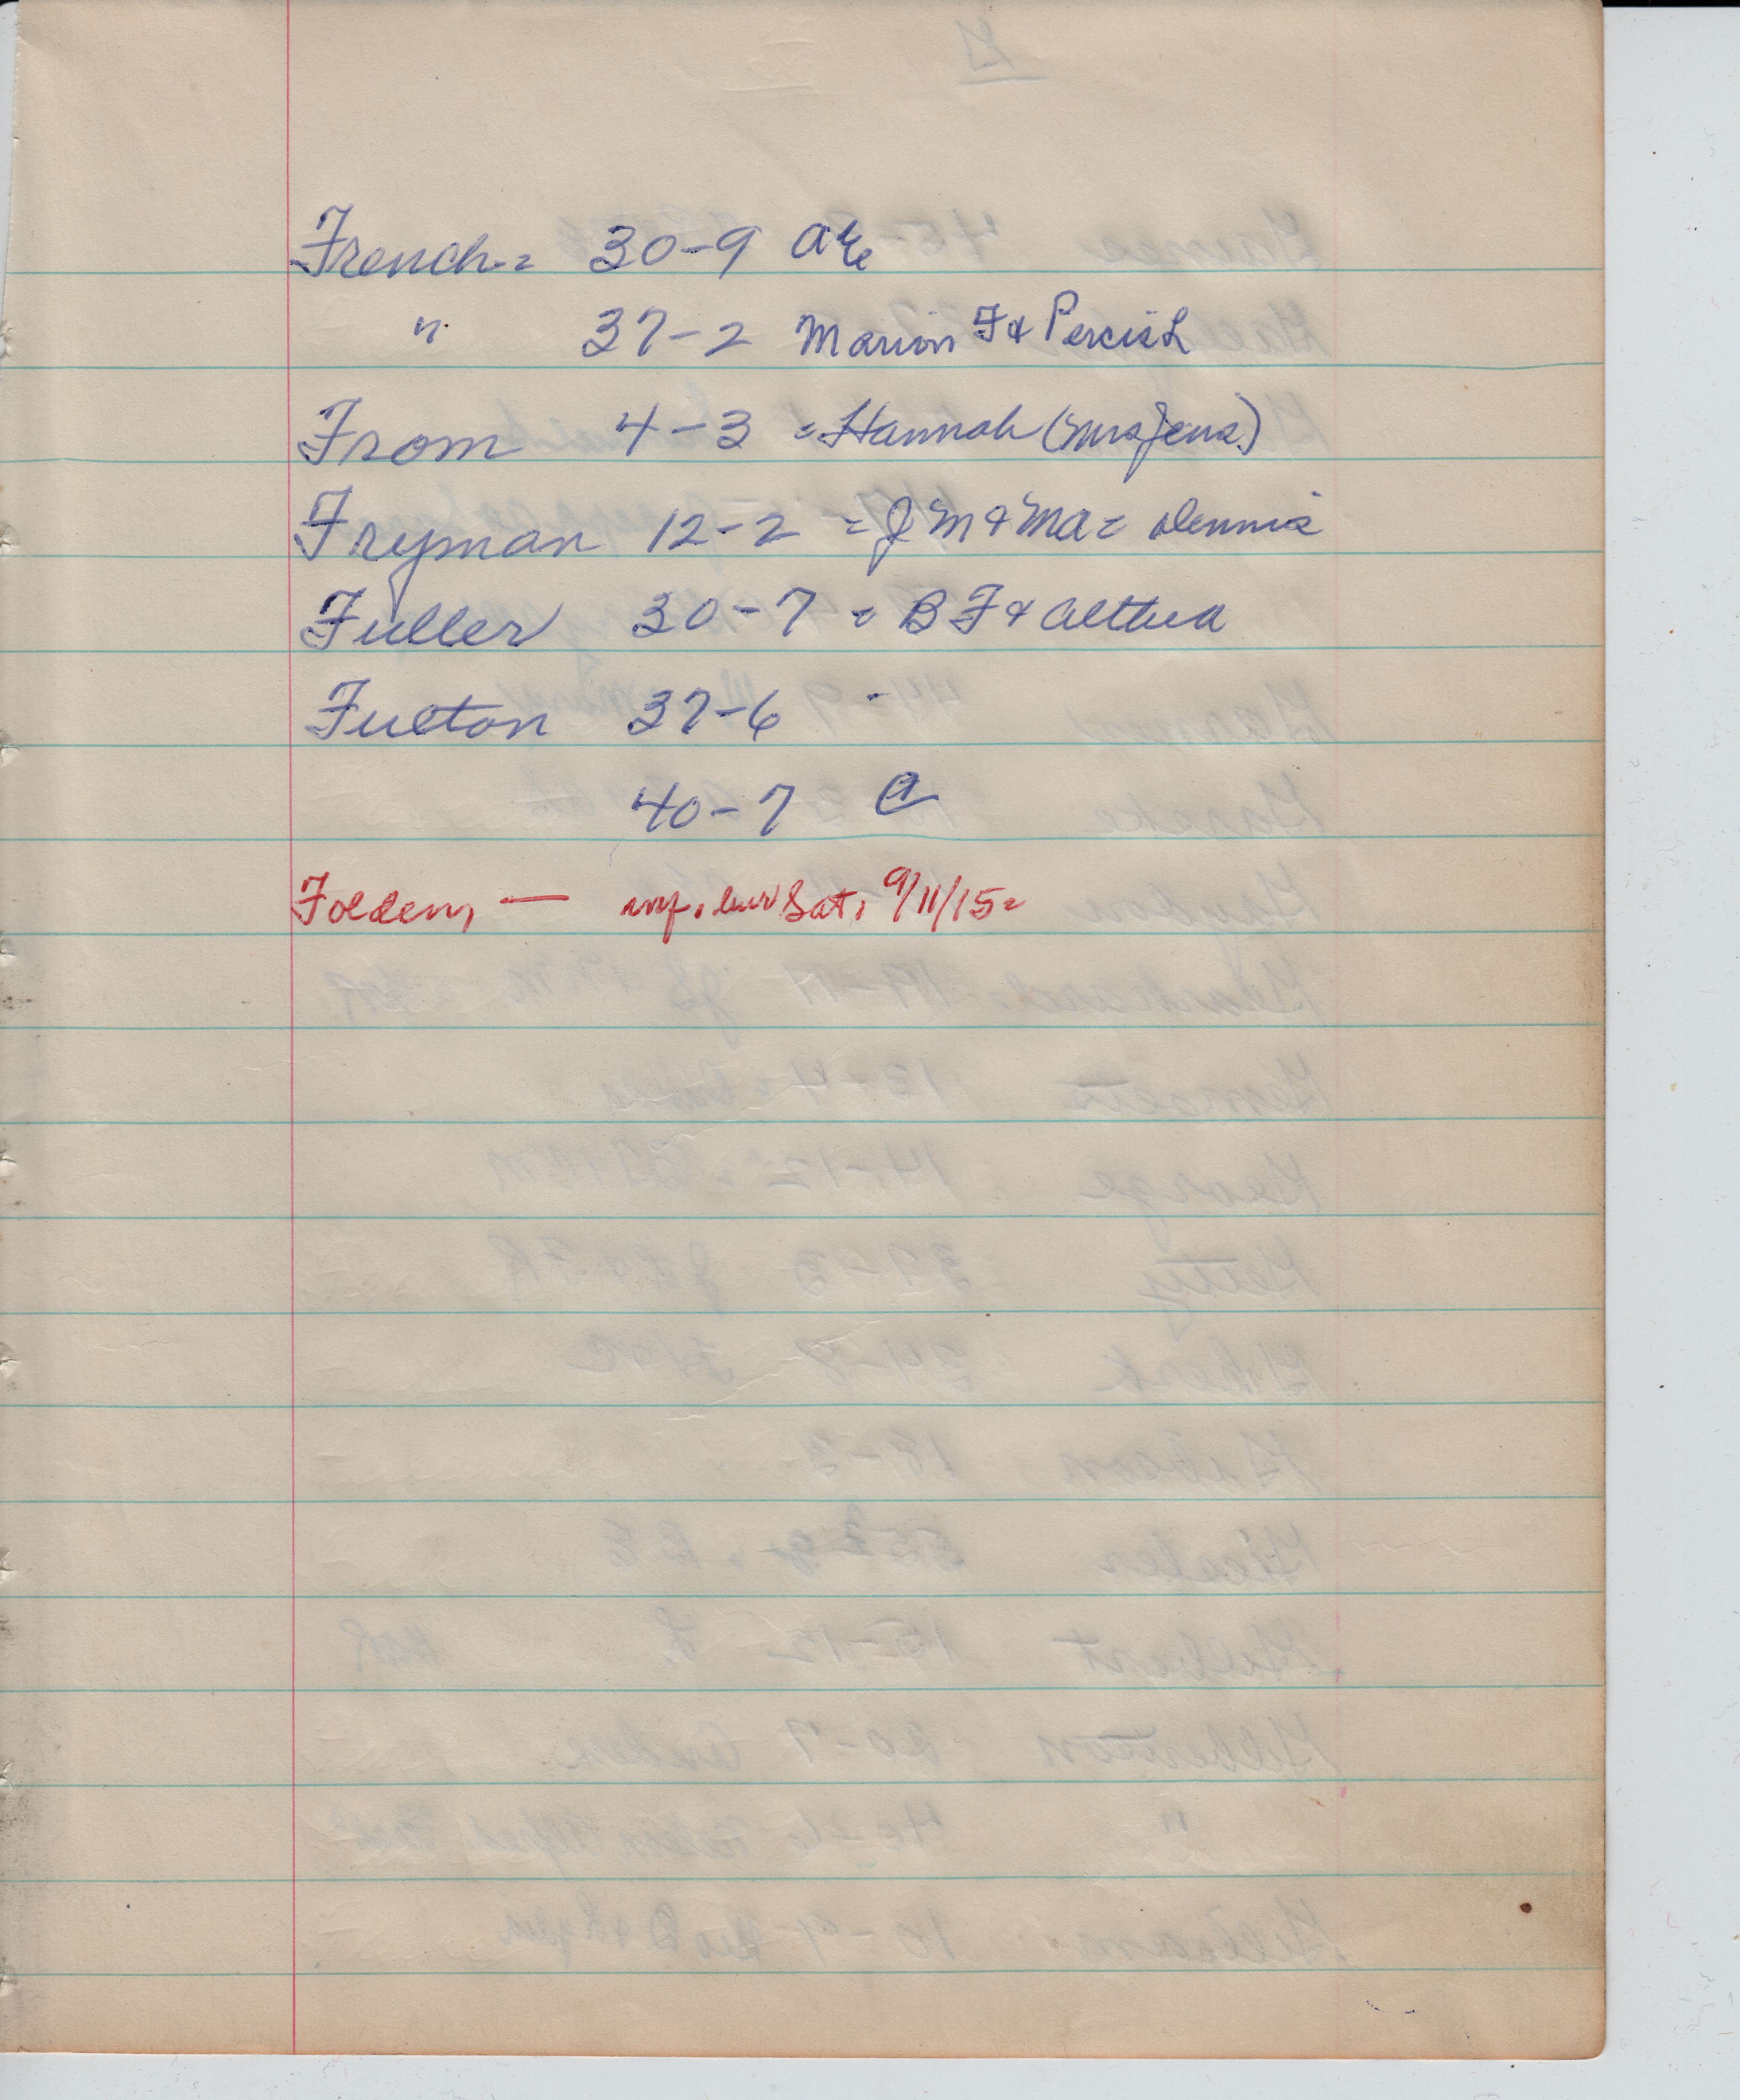 French = 30-9 A E
" 37-2 Marion F & Percis L
From 4-3 = Hannah (Mrs Jens)
Fryman 12-2 = J M & M A = Dennis
Fuller 30-7 = B F & Althea
Fulton 37-6
40-7 A
Folden, — inf. bur Sat, 9/11/15 =